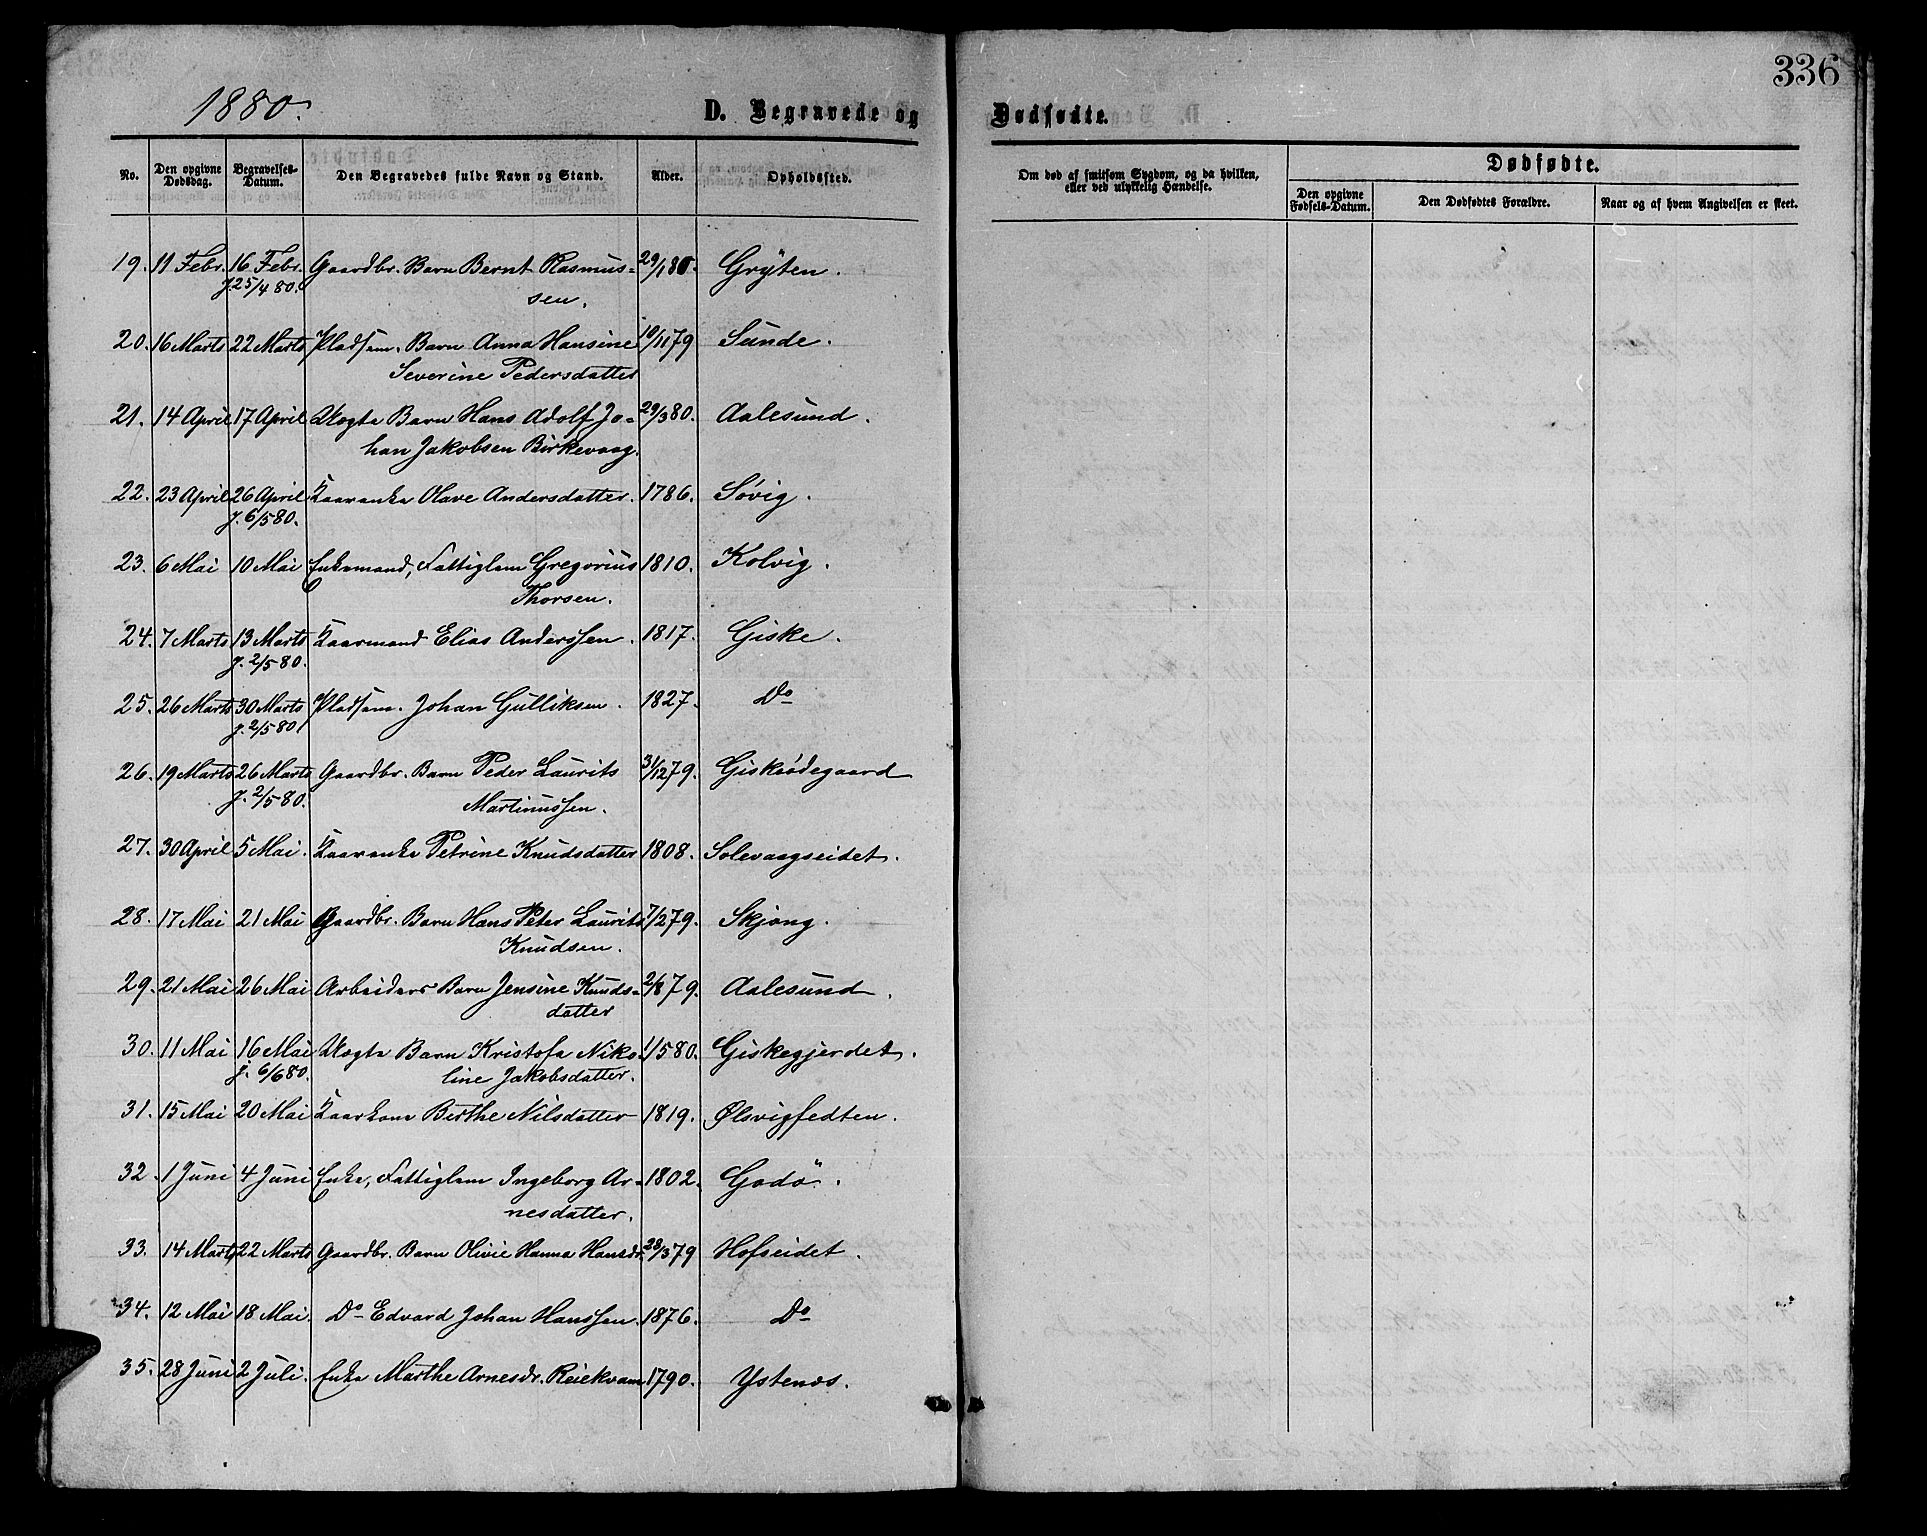 336
1880.
D. Begravede og Dødfødte.
No. Den opgivne Dødsdag. Begravelses-Datum. Den Begravedes fulde Navn og Stand. Alder. Opholdssted. Om død af smitsom Sygdom, og da hvilken, eller ved ulykkelig Hændelse. Dødfødte.
Den opgivne Fødsels-Datum. Den Dødfødtes Forældre. Naar og af hvem Angivelsen er skeet.
19. 11 Febr. 16 Febr. Gaardbr. Barn Bernt Rasmus- 29/1 80. Gryten.
J. 25/4 80. sen.
20. 16 Marts 22 Marts Pladsem. Barn Anna Hansine 10/11 79 Sunde.
Severine Pedersdatter
21. 14 April 17 April Uægte Barn Hans Adolf Jo- 29/3 80. Aalesund.
han Jakobsen Birkevaag.
22. 23 April 26 April Kaarenke Olave Andersdatter. 1786. Søvig.
J. 6/5 80.
23. 6 Mai 10 Mai Enkemand, Fattiglem Gregorius 1810. Kolvig.
Thorsen.
24. 7 Marts 13 Marts Kaarmand Elias Anderssen. 1817. Giske.
J. 2/5 80.
25. 26 Marts 30 Marts Pladsem. Johan Gulliksen. 1827. Do
J. 2/5 80
26. 19 Marts 26 Marts Gaardbr. Barn Peder Laurits 31/12 79. Giskeødegaard
J. 2/5 80. Martinussen.
27. 30 April 5 Mai. Kaarenke Petrine Knudsdatter 1808. Solevaagseidet.
28. 17 Mai 21 Mai Gaardbr. Barn Hans Peter Laurits 7/2 79. Skjong.
Knudsen.
29. 21 Mai 26 Mai Arbeiders Barn Jensine Knuds- 2/8 79. Aalesund.
datter
30. 11 Mai 16 Mai Uægte Barn Kristofa Niko- 1/5 80. Giskegjerdet.
J. 6/6 80. line Jakobsdatter.
31. 15 Mai 20 Mai Kaarkone Berthe Nilsdatter 1819. Ølsvigfedten.
32. 1 Juni 4 Juni Enke, Fattiglem Ingeborg Ar- 1802. Godö.
nesdatter.
33. 14 Marts 22 Marts Gaardbr. Barn Olivie Hanna Hansdr. 28/3 79 Hofseidet.
34. 12 Mai 18 Mai. Do Edvard Johan Hanssen. 1876. Do
35. 28 Juni 2 Juli. Enke Marthe Arnesdr. Reiekvam 1790. Ystenes.